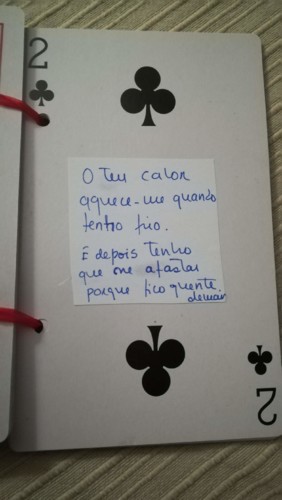 2
O teu calor
aquece-me quando
tenho frio.
E depois tenho
que me afastar
porque fico quente
demais
2